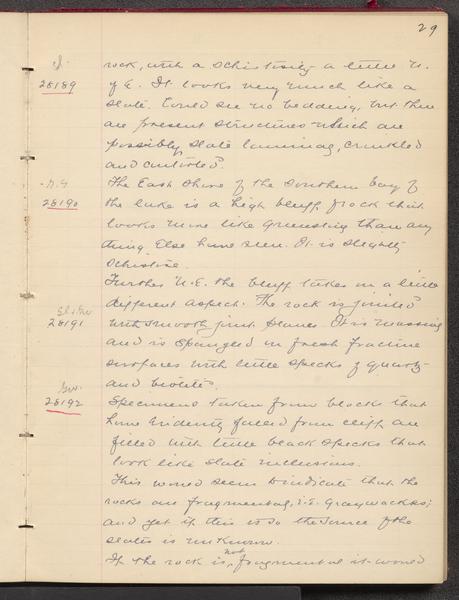 29
rock, with a schistosity a little N.
28189
of E. It looks very much like a
slate. Could see no bedding, but there
are present structures which are
possibly slate laminag, crinkled
and contorted.
The East shore of the southern bay of
28190
the lake is a high bluff of rock that
looks more like greenstone than any
thing else have seen. It is slightly
schistose.
Further N.E. the bluff takes on a little
different aspect. The rock is jointed
28191
with smooth joint planes. It is massive
and is spangled in fresh fracture
surfaces with little specks of quartz
and biotite.
28192
Specimens taken from blocks that
have evidently falled from cliff are
filled with little black specks that
look like slate inclusions.
This would seem to indicate that the
rocks are fragmental, i.e. graywackes;
and yet if this is so the source of the
slates is unknown.
If the rock is not fragmental it would